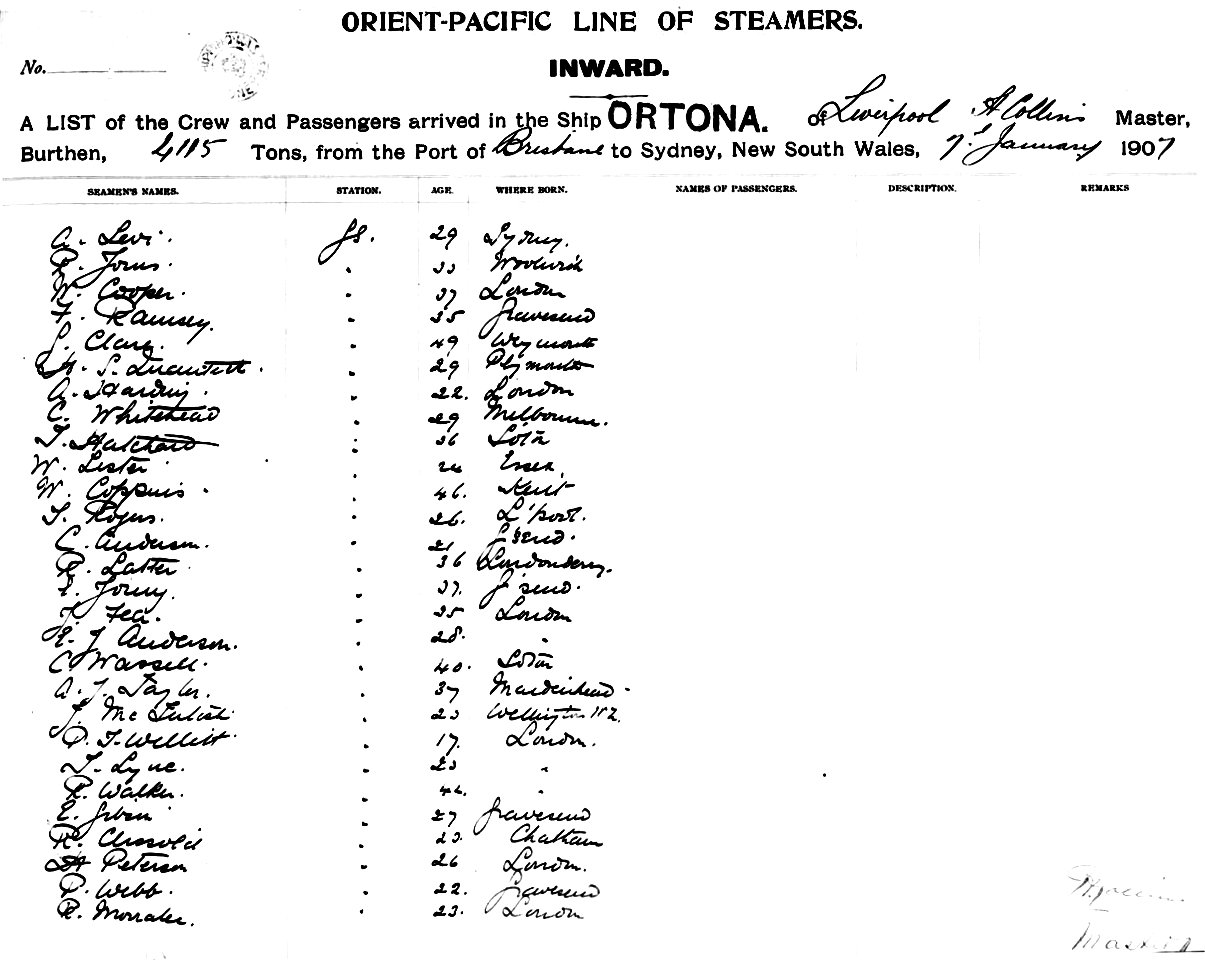 ORIENT-PACIFIC LINE OF STEAMERS.
No.
INWARD.
A LIST of the Crew and Passengers arrived in the Ship ORTONA. of Liverpool A Collins Master,
Burthen, 4115 Tons, from the Port of Brisbane to Sydney, New South Wales, 7th January 1907
SEAMEN'S NAMES. STATION. AGE. WHERE BORN. NAMES OF PASSENGERS. DESCRIPTION. REMARKS
A. Levi. 29 Sydney.
33 Woolwich
W. Cooper. " 37 London
F. Ramsey. " 35 Gravesend
" 49 Weymouth
" 29 Plymouth
A. Harding. " 22. London
C. Whitehead " 29 Melbourne.
T. " 36 Soton
W. Lester " Essex.
W. Coppins. " 46. Kent
T. Rogers. " 26. L'pool.
C. Anderson. " 21 G'send.
R. Latter. " 36 Londonderry.
" 37. G'send.
J. Fea. " 35 London
E. J Anderson. " 28. "
C Wassell. " 40. Soton
A. J. Taylor. " 37 Maidenhead.
J. " 23 Wellington NZ.
P. J. Willett. " 17. London.
T. Lyne. " 23 "
R. Walker. " "
E. " 27 Gravesend
R. " 23. Chatham
A Peterson " 26 London.
P. Webb. " 22. Gravesend
R. " 23. London
A Collins
Master